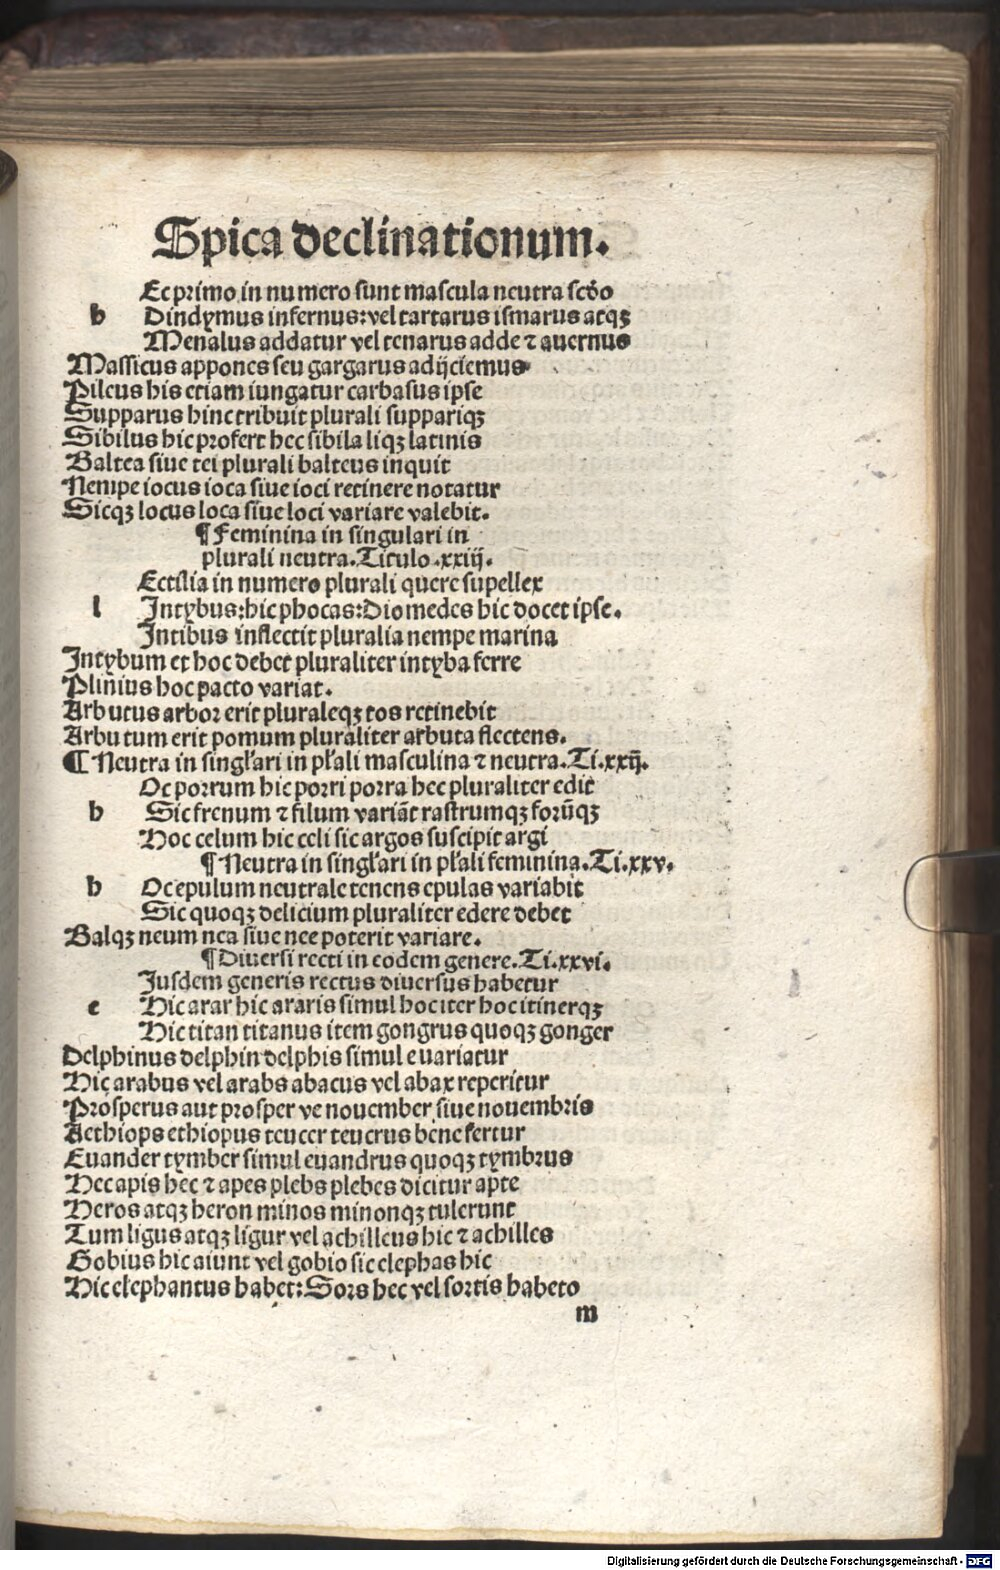 Spica declinationum.
Ec primo in numero sunt mascula neutra scďo
h Dindymus infernus: vel tartarus ismarus atqꝫ
Menalus addatur vel tenarus adde ⁊ auernus
Massicus appones seu gargarus adijciemus
Pileus his etiam iungatur carbasus ipse
Supparus hinc tribuit plurali suppariqꝫ
Sibilus hic profert hec sibila liqꝫ latinis
Baltea siue tei plurali balteus inquit
Nempe iocus ioca siue ioci retinere notatur
Sicqꝫ locus loca siue loci variare valebit.
¶ Feminina in singulari in
plurali neutra. Titulo .xxiij.
Ectilia in numero plurali quere supellex
l Intybus: hic phocas: Diomedes hic docet ipse.
Intibus inflectit pluralia nempe marina
Intybum et hoc debet pluraliter intyba ferre
Plinius hoc pacto variat.
Arbutus arbor erit pluraleqꝫ tos retinebit
Arbutum erit pomum pluraliter arbuta flectens.
¶ Neutra in singl'ari in pl'ali masculina ⁊ neutra. Ti. xxij.
Oc porrum hic porri porra hec pluraliter edit
h Sic frenum ⁊ filum variāt rastrumqꝫ forūqꝫ
Hoc celum hic celi sic argos suscipit argi
¶ Neutra in singl'ari in pl'ali feminina. Ti. xxv.
h Oc epulum neutrale tenens epulas variabit
Sic quoqꝫ delicium pluraliter edere debet
Balqꝫ neum nea siue nee poterit variare.
¶ Diuersi recti in eodem genere. Ti. xxvi.
Iusdem generis rectus diuersus habetur
e Hic arar hic araris simul hoc iter hoc itinerqꝫ
Hic titan titanus item gongrus quoqꝫ gonger
Delphinus delphin delphis simul euariatur
Hic arabus vel arabs abacus vel abax reperitur
Prosperus aut prosper ve nouember siue nouembris
Aethiops ethiopus teucer teucrus bene fertur
Euander tymber simul euandrus quoqꝫ tymbrus
Hec apis hec ⁊ apes plebs plebes dicitur apte
Heros atqꝫ heron minos minonqꝫ tulerunt
Tum ligus atqꝫ ligur vel achilleus hic ⁊ achilles
Gobius hic aiunt vel gobio sic elephas hic
Hic elephantus habet: Sors hec vel sortis habeto
m
Digitalisierung gefördert durch die Deutsche Forschungsgemeinschaft - DFG